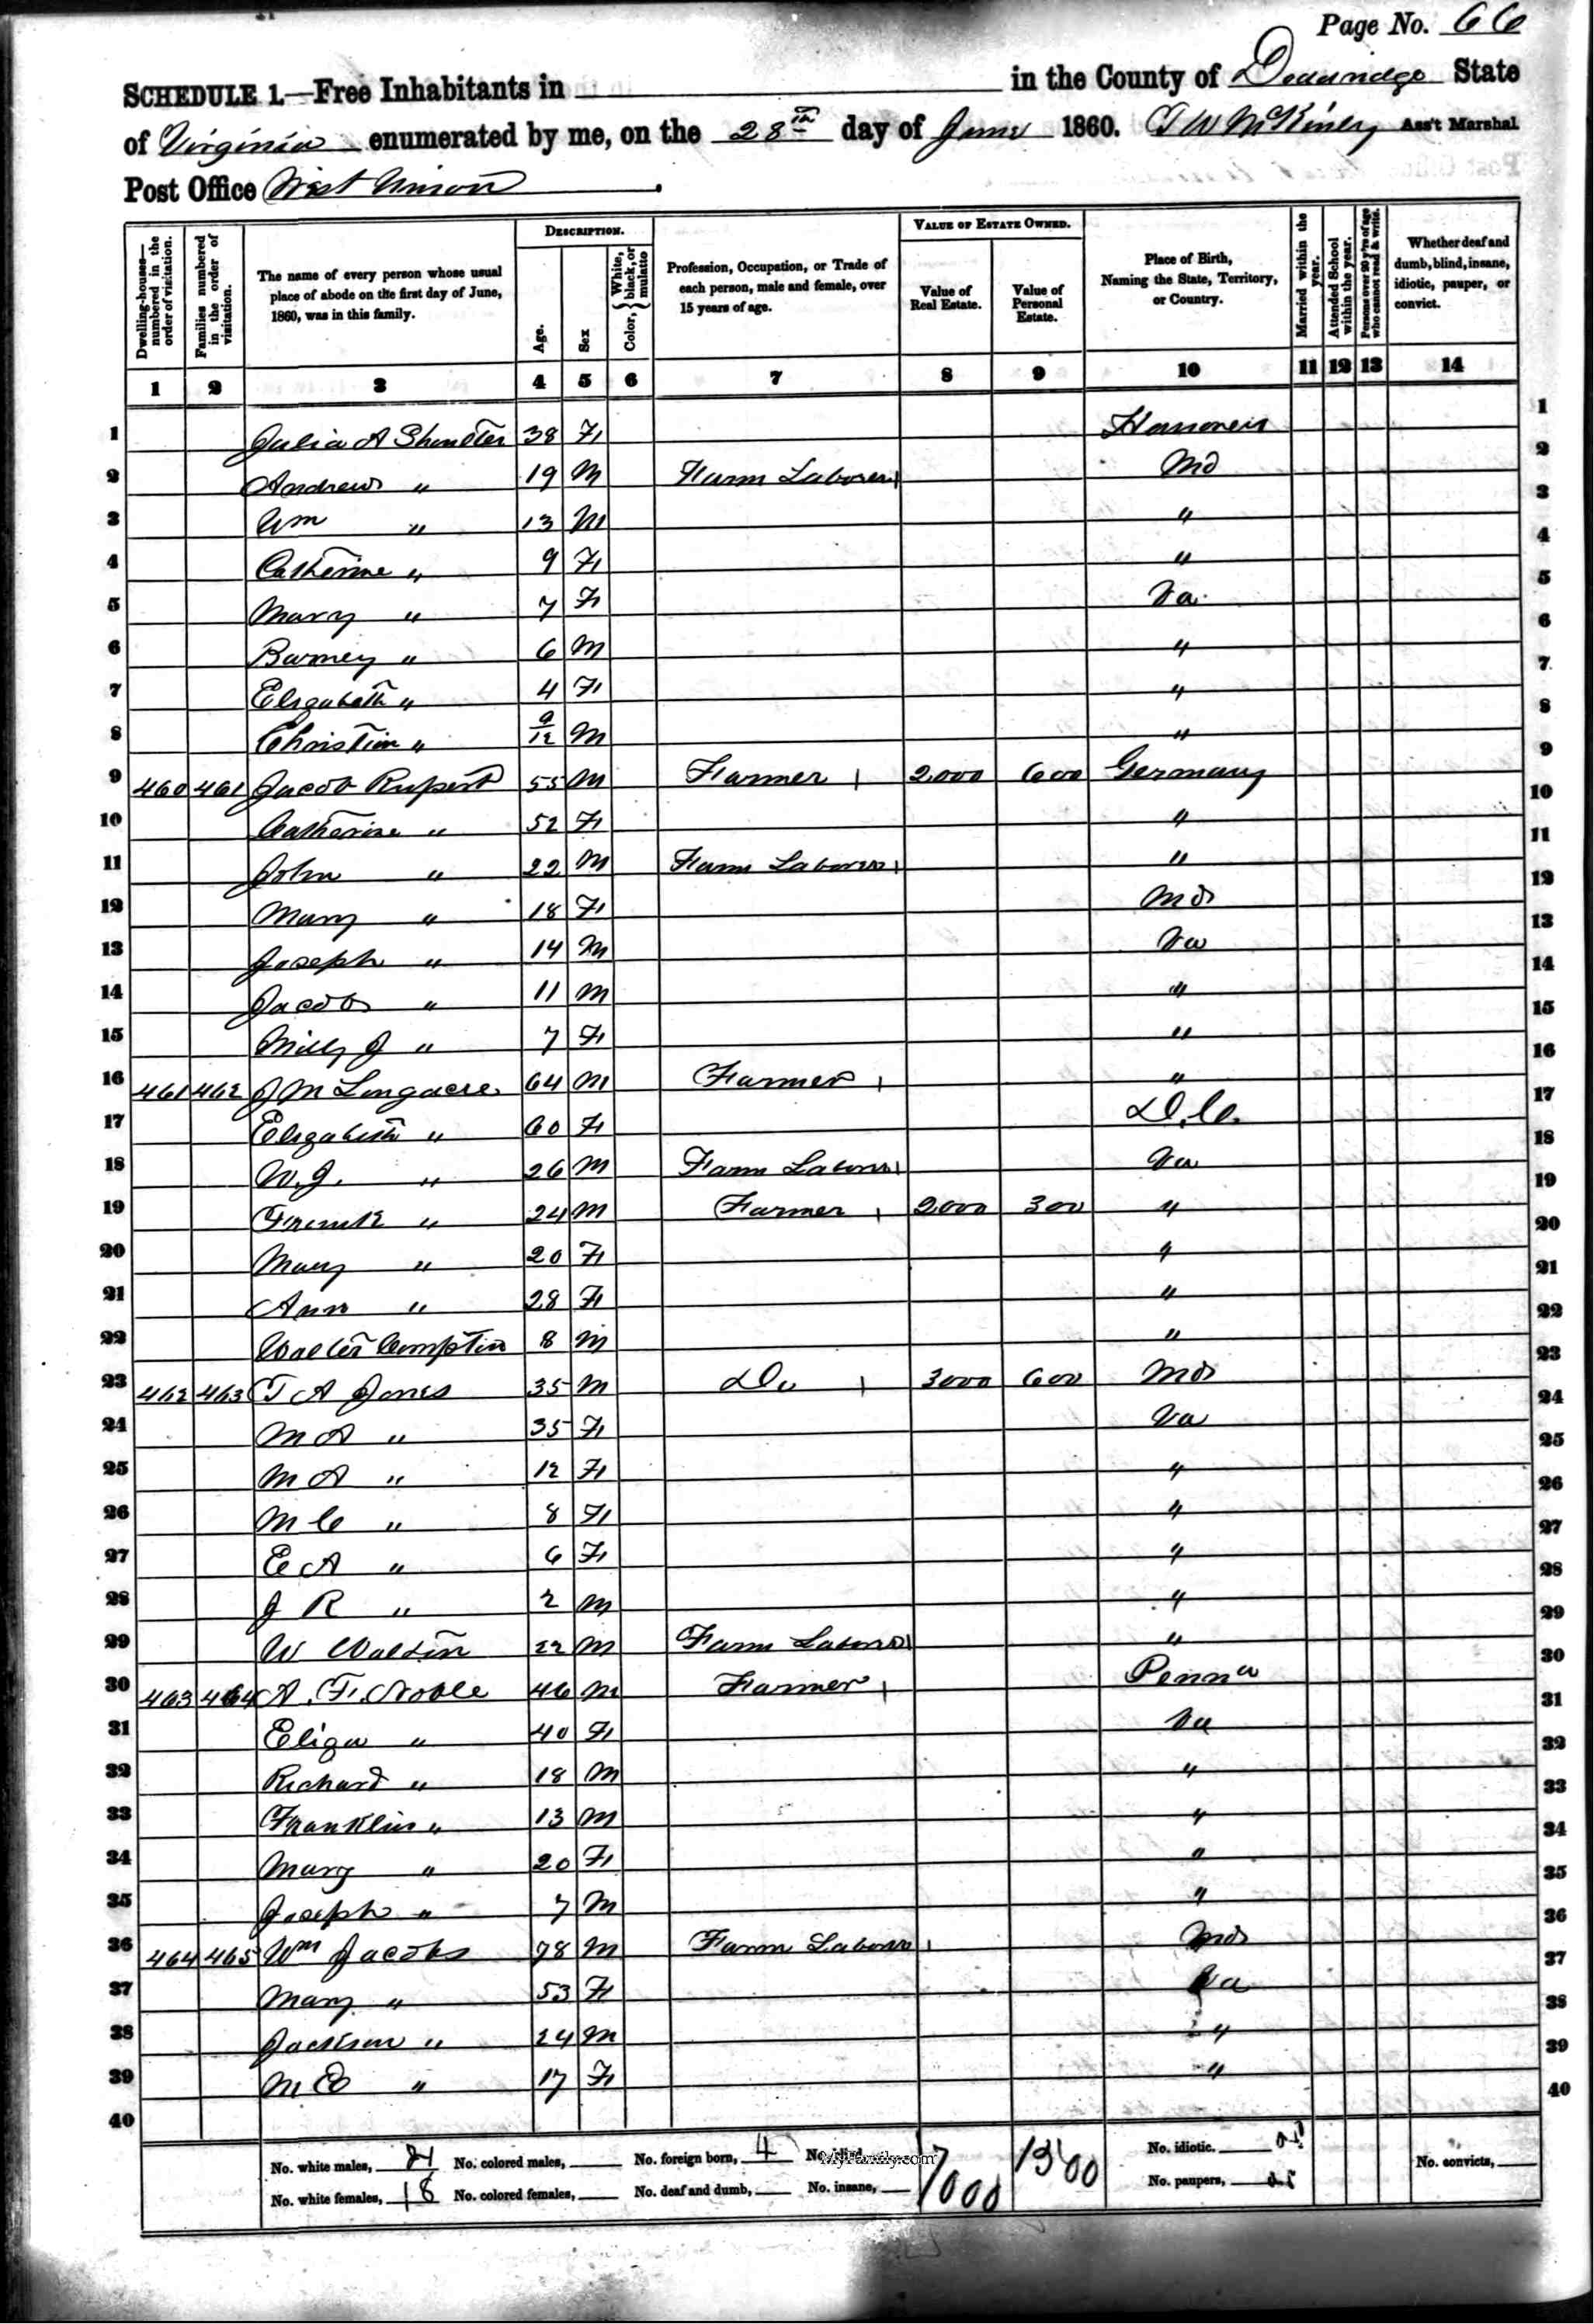 Page No. 66
SCHEDULE 1.—Free Inhabitants in in the County of Doddridge State
of Virginia enumerated by me, on the 28th day of June 1860. T W McKinly Ass't Marshal
Post Office West Union
Dwelling-houses—numbered in the order of visitation. Families numbered in the order of visitation. The name of every person whose usual place of abode on the first day of June, 1860, was in this family. DESCRIPTION. Age. Sex Color, White, black, or mulatto Profession, Occupation, or Trade of each person, male and female, over 15 years of age. VALUE OF ESTATE OWNED. Value of Real Estate. Value of Personal Estate. Place of Birth, Naming the State, Territory, or Country. Married within the year. Attended School within the year. Persons over 20 y'rs of age who cannot read & write. Whether deaf and dumb, blind, insane, idiotic, pauper, or convict.
1 2 3 4 5 6 7 8 9 10 11 12 13 14
1 Julia A 38 F 1
2 Andrew " 19 M Farm Laborer Md 2
3 Wm " 13 M " 3
4 Catherine " 9 F " 4
5 Mary " 7 F Va. 5
6 Barney " 6 M " 6
7 Elizabeth " 4 F " 7
8 Christian " 9/12 M " 8
9 460 461 Jacob Rupert 55 M Farmer 2000 600 Germany 9
10 Catherine " 52 F " 10
11 John " 22 M Farm Laborer " 11
12 Mary " 18 F Md 12
13 Joseph " 14 M Va 13
14 Jacob " 11 M " 14
15 Milly J " 7 F " 15
16 461 462 J M Longacre 64 M Farmer " 16
17 Elizabeth " 60 F D.C. 17
18 W. J. " 26 M Farm Laborer Va 18
19 Frank " 24 M Farmer 2000 300 " 19
20 Mary " 20 F " 20
21 Ann " 28 F " 21
22 Walter Compton 8 M " 22
23 462 463 T A Jones 35 M Do 3000 600 Md 23
24 M A " 35 F Va 24
25 M A " 12 F " 25
26 M C " 8 F " 26
27 E A " 6 F " 27
28 J R " 2 M " 28
29 W Waldin 22 M Farm Laborer " 29
30 463 464 A. F. Noble 46 M Farmer Penna 30
31 Eliza " 40 F Va 31
32 Richard " 18 M " 32
33 Franklin " 13 M " 33
34 Mary " 20 F " 34
35 Joseph " 7 M " 35
36 464 465 Wm Jacobs 78 M Farm Laborer Md 36
37 Mary " 53 F Va 37
38 Jackson " 24 M " 38
39 M E " 17 F " 39
40 40
No. white males, 21 No. colored males, No. foreign born, 4 No. blind, 7000 1500 No. idiotic.
No. white females, 18 No. colored females, No. deaf and dumb, No. insane, No. paupers, No. convicts,
MyFamily.com